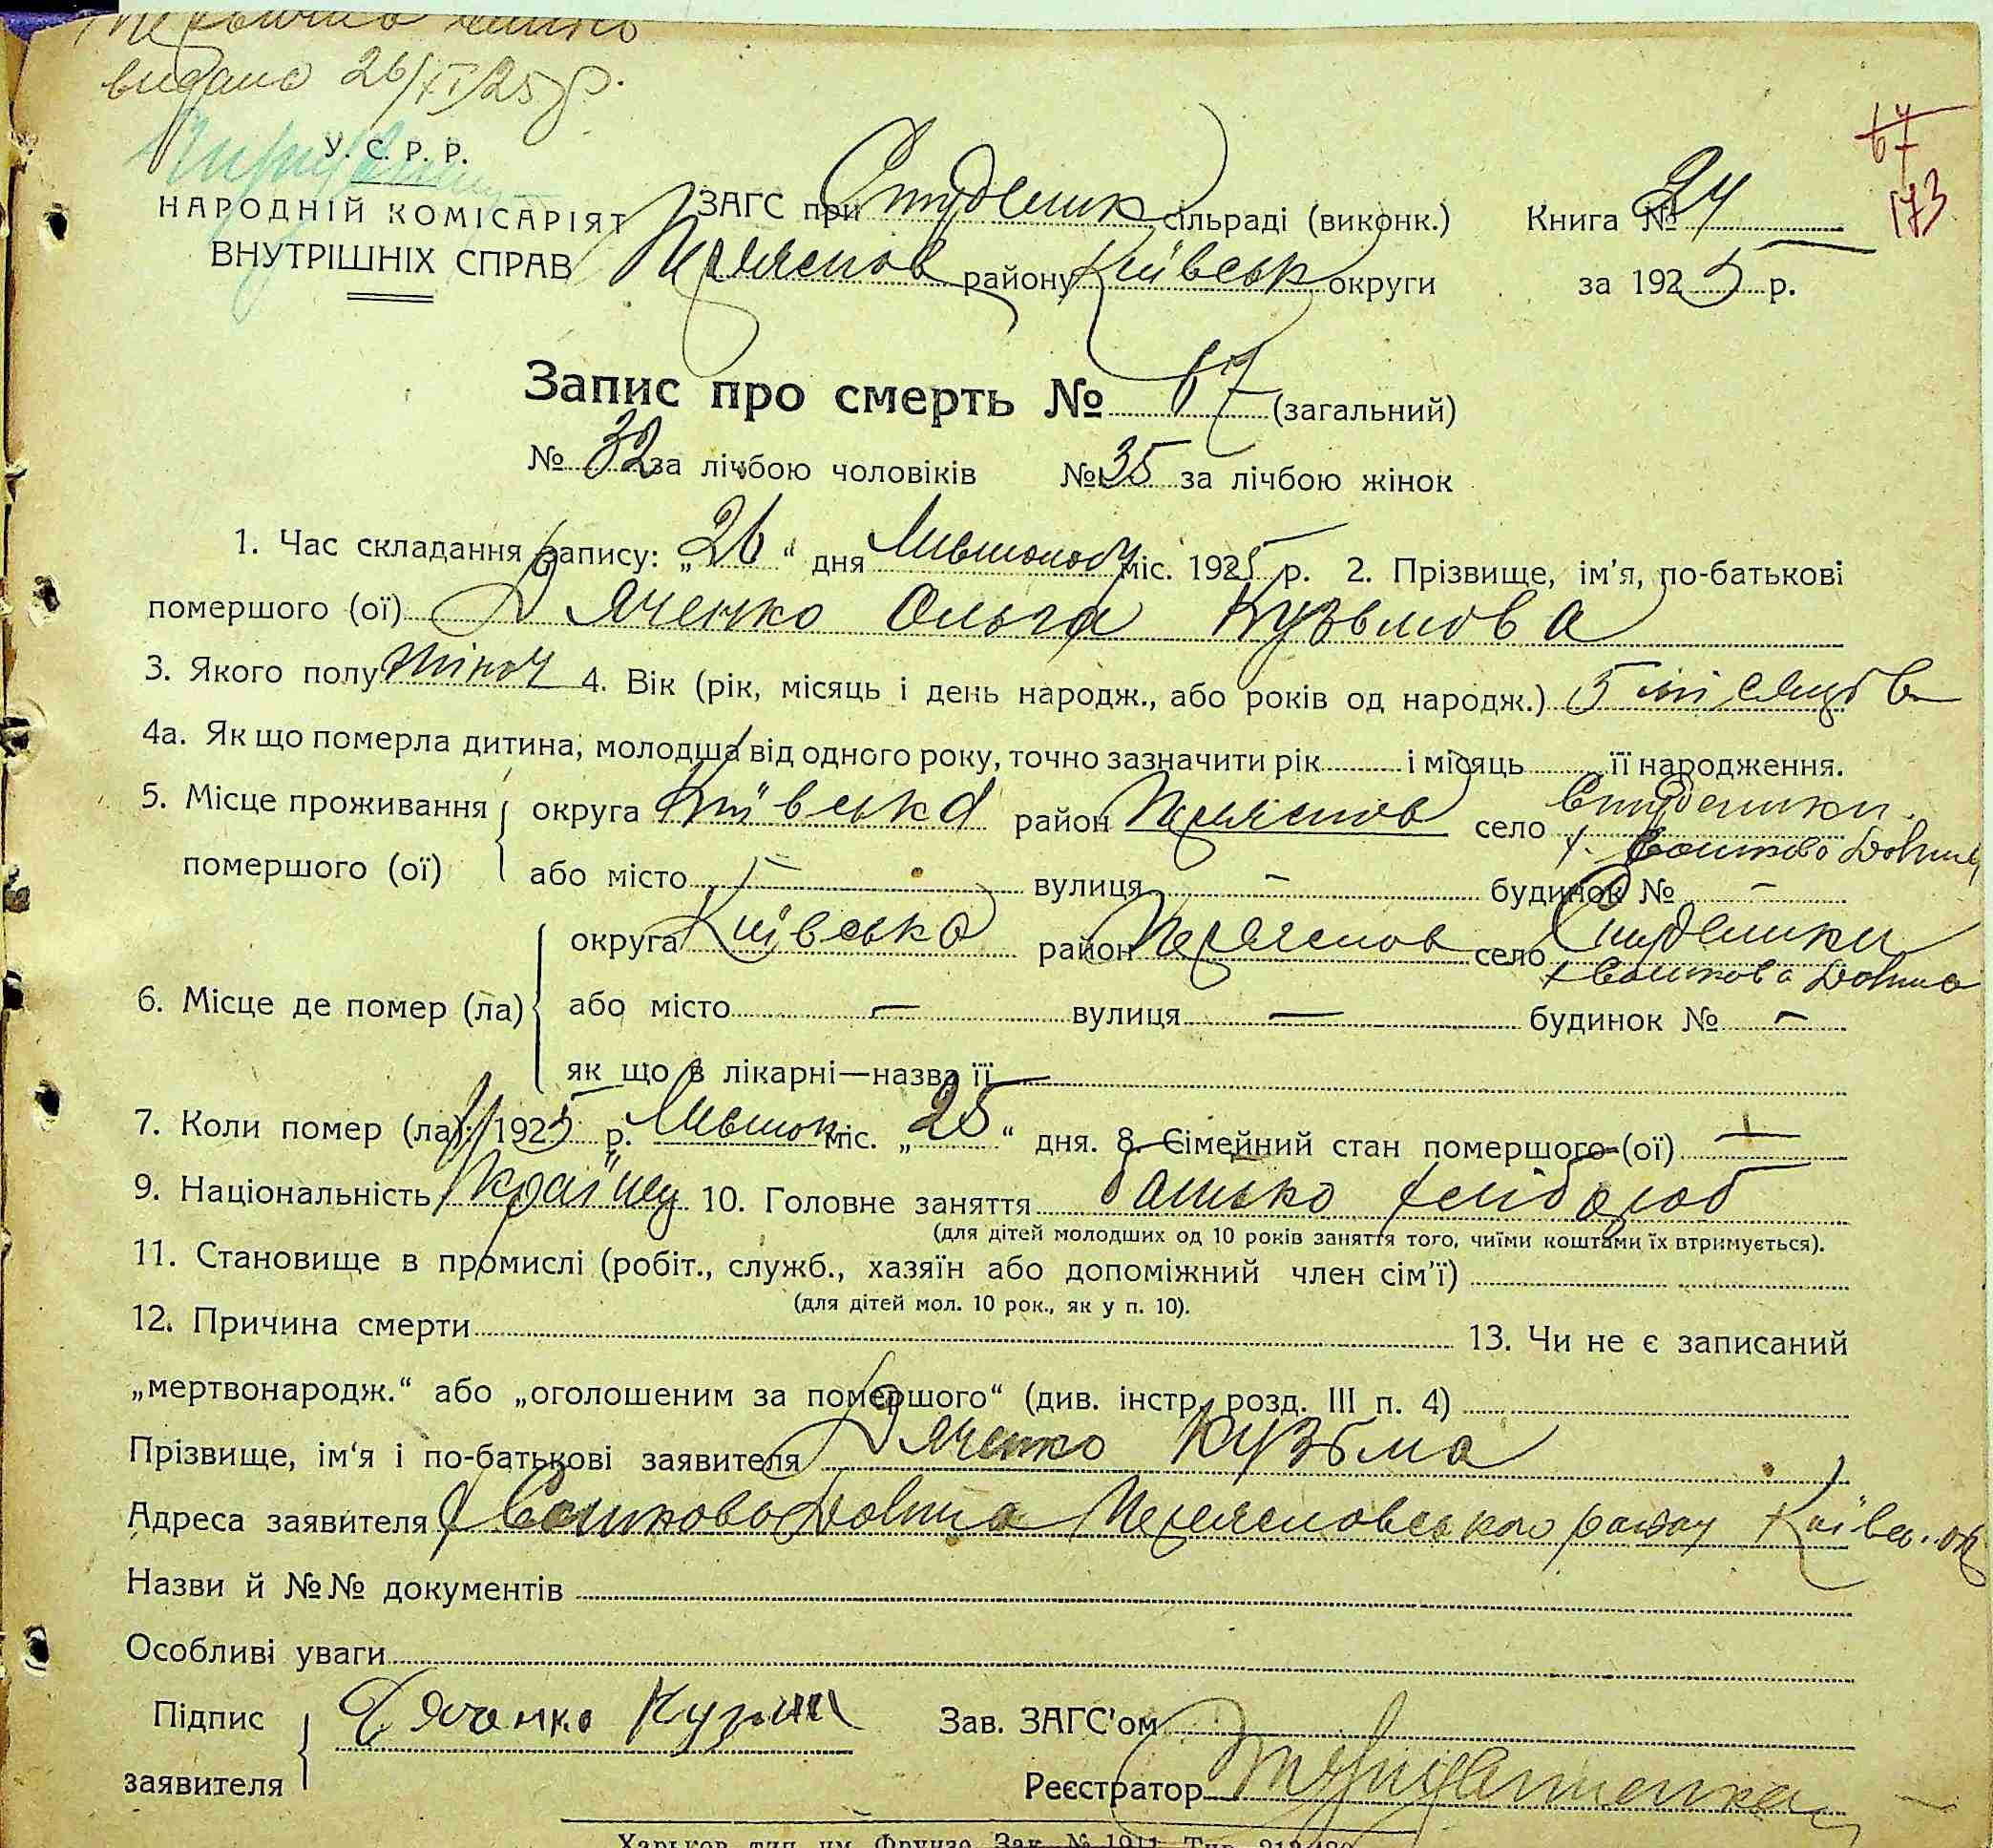 видано 26/XI 25 р.
У. С. Р. Р.
НАРОДНІЙ КОМІСАРІЯТ
ВНУТРІШНІХ СПРАВ
ЗАГС при Студеник сільраді (виконк.)
Переяслов району Київськ округи
Книга № 24
за 1925 р.
67
173
Запис про смерть № 67 (загальний)
№ 32 за лічбою чоловіків № 35 за лічбою жінок
1. Час складання запису: „26“ дня Листопаду міс. 1925 р. 2. Прізвище, ім'я, по-батькові
помершого (ої) Дяченко Ольга Кузьмова
3. Якого полу жіноч 4. Вік (рік, місяць і день народж., або років од народж.) 5 місяців
4а. Як що померла дитина, молодша від одного року, точно зазначити рік і місяць її народження.
5. Місце проживання помершого (ої)
округа Київська район Переяслов село Студеники
х. Сошкова Долина
або місто — вулиця — будинок № —
6. Місце де помер (ла)
округа Київська район Переяслов село Студеники
х Сошкова Долина
або місто — вулиця — будинок № —
як що в лікарні—назва її —
7. Коли помер (ла) 1925 р. Листоп міс. „25“ дня. 8. Сімейний стан помершого (ої)
9. Національність Україн 10. Головне заняття батько хлібороб
(для дітей молодших од 10 років заняття того, чиїми коштами їх втримується).
11. Становище в промислі (робіт., служб., хазяїн або допоміжний член сім'ї)
(для дітей мол. 10 рок., як у п. 10).
12. Причина смерти 13. Чи не є записаний
„мертвонародж.“ або „оголошеним за помершого“ (див. інстр. розд. III п. 4)
Прізвище, ім'я і по-батькові заявителя Дяченко Кузьма
Адреса заявителя х Сошкова Долина Переясловського району Київс. ок
Назви й №№ документів
Особливі уваги
Підпис заявителя Дяченко Кузьма
Зав. ЗАГС'ом
Реєстратор
Харьков, тип. им. Фрунзе. Зак. № 1911. Тир.